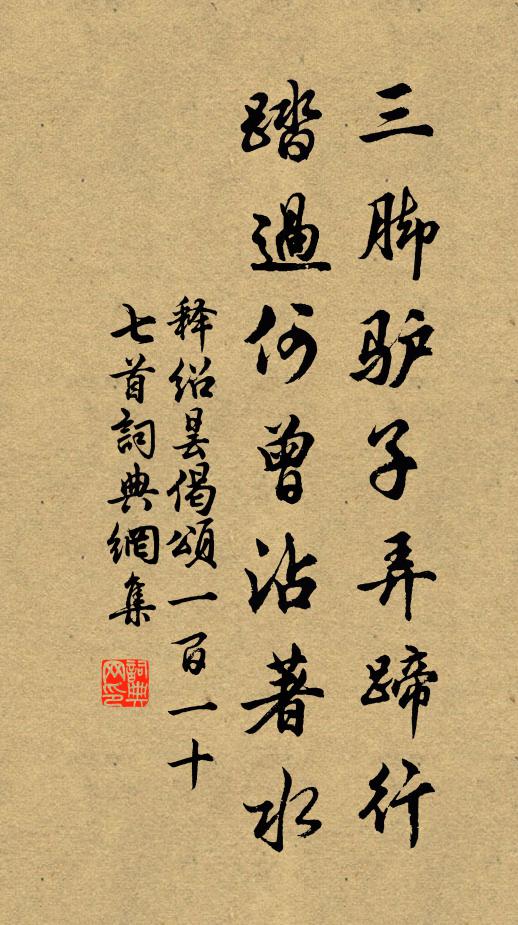 三脚驴子弄蹄行
踏過何曾沾著水
释绍昙偈頌一百一十
七首詞典網集
詞典
网印